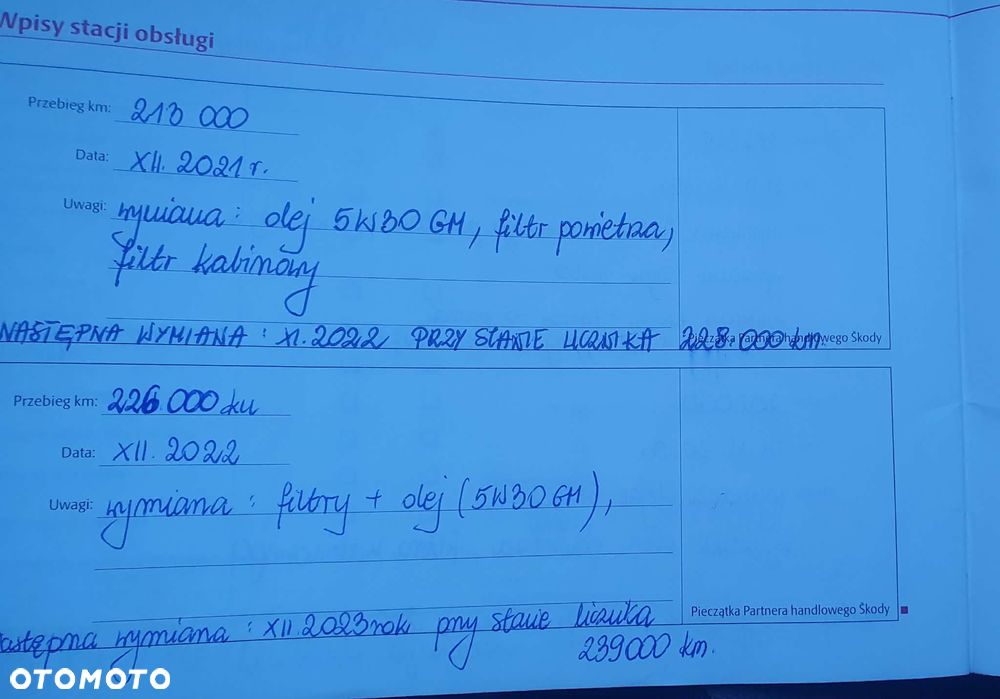 Wpisy stacji obsługi
Przebieg km: 213 000
Data: XII. 2021 r.
Uwagi: wymiana : olej 5W30 GM, filtr powietrza,
filtr kabinowy
NASTĘPNA WYMIANA : XI. 2022 PRZY STANIE LICZNIKA 228.000 km.
Pieczątka Partnera handlowego Škody
Przebieg km: 226.000 km
Data: XII. 2022
Uwagi: wymiana : filtry + olej (5W30 GM),
Pieczątka Partnera handlowego Škody
astępna wymiana : XII. 2023 rok przy stanie licznika
239000 km.
OTOMOTO